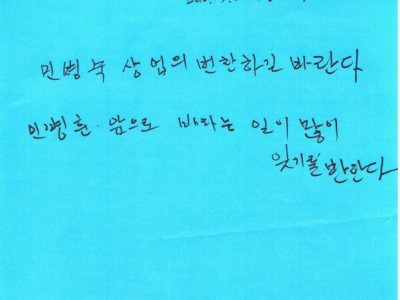 민병숙 상업의 번한하길 바란다
민병훈. 앞으로 바라는 일이 많이
잊기를 반한다